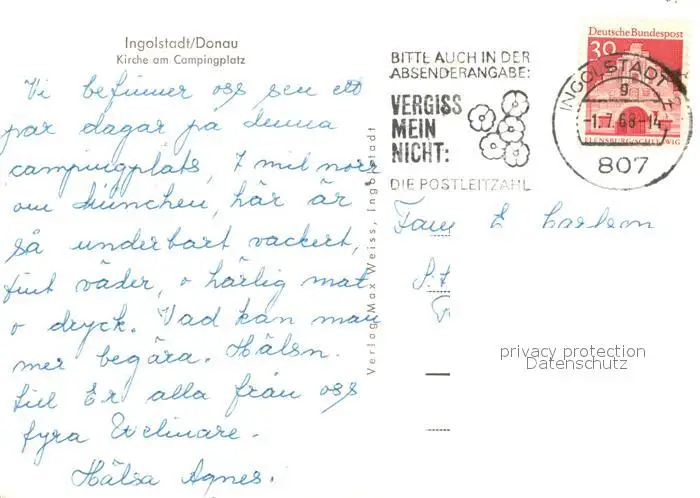 Ingolstadt/Donau
Kirche am Campingplatz
Vi befinner oss sen ett
par dagar på denna
campingplats, 7 mil norr
om München, här är
så underbart vackert,
fint väder, o härlig mat
o dryck. Vad kan man
mer begära. Hälsn.
till Er alla från oss
fyra
Hälsa Agnes.
Verlag Max Weiss, Ingolstadt
BITTE AUCH IN DER
ABSENDERANGABE:
VERGISS
MEIN
NICHT:
DIE POSTLEITZAHL
Deutsche Bundespost
30
FLENSBURG/SCHLESWIG
INGOLSTADT 2
g
-1.7.68-14
807
Fam E
privacy protection
Datenschutz